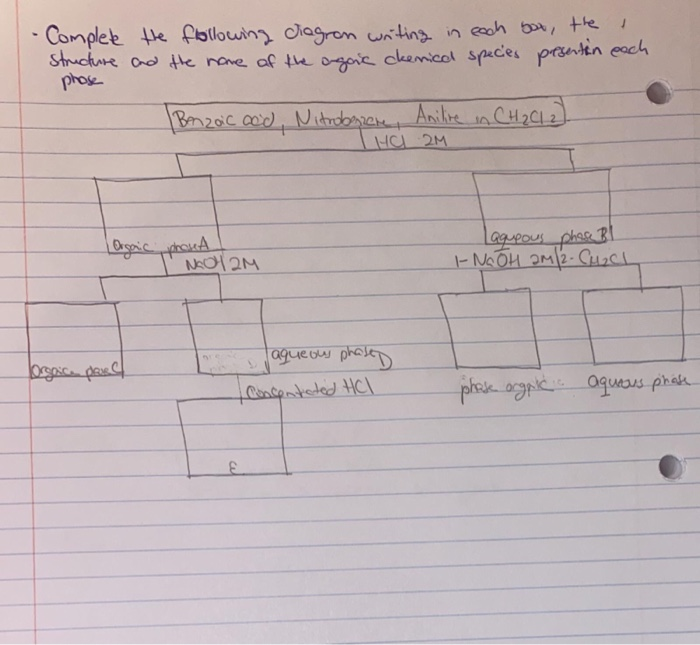 - Complete the following diagram writing in each box, the
structure and the name of the organic chemical species present in each
phase
Benzoic acid, Nitrobenzene, Aniline in CH2Cl2
HCl 2M
Organic phase A
aqueous phase B
NaOH 2M
1- NaOH 2M/2- CH2Cl
Organic phase C
aqueous phase D
phase organic
aqueous phase
Concentrated HCl
E